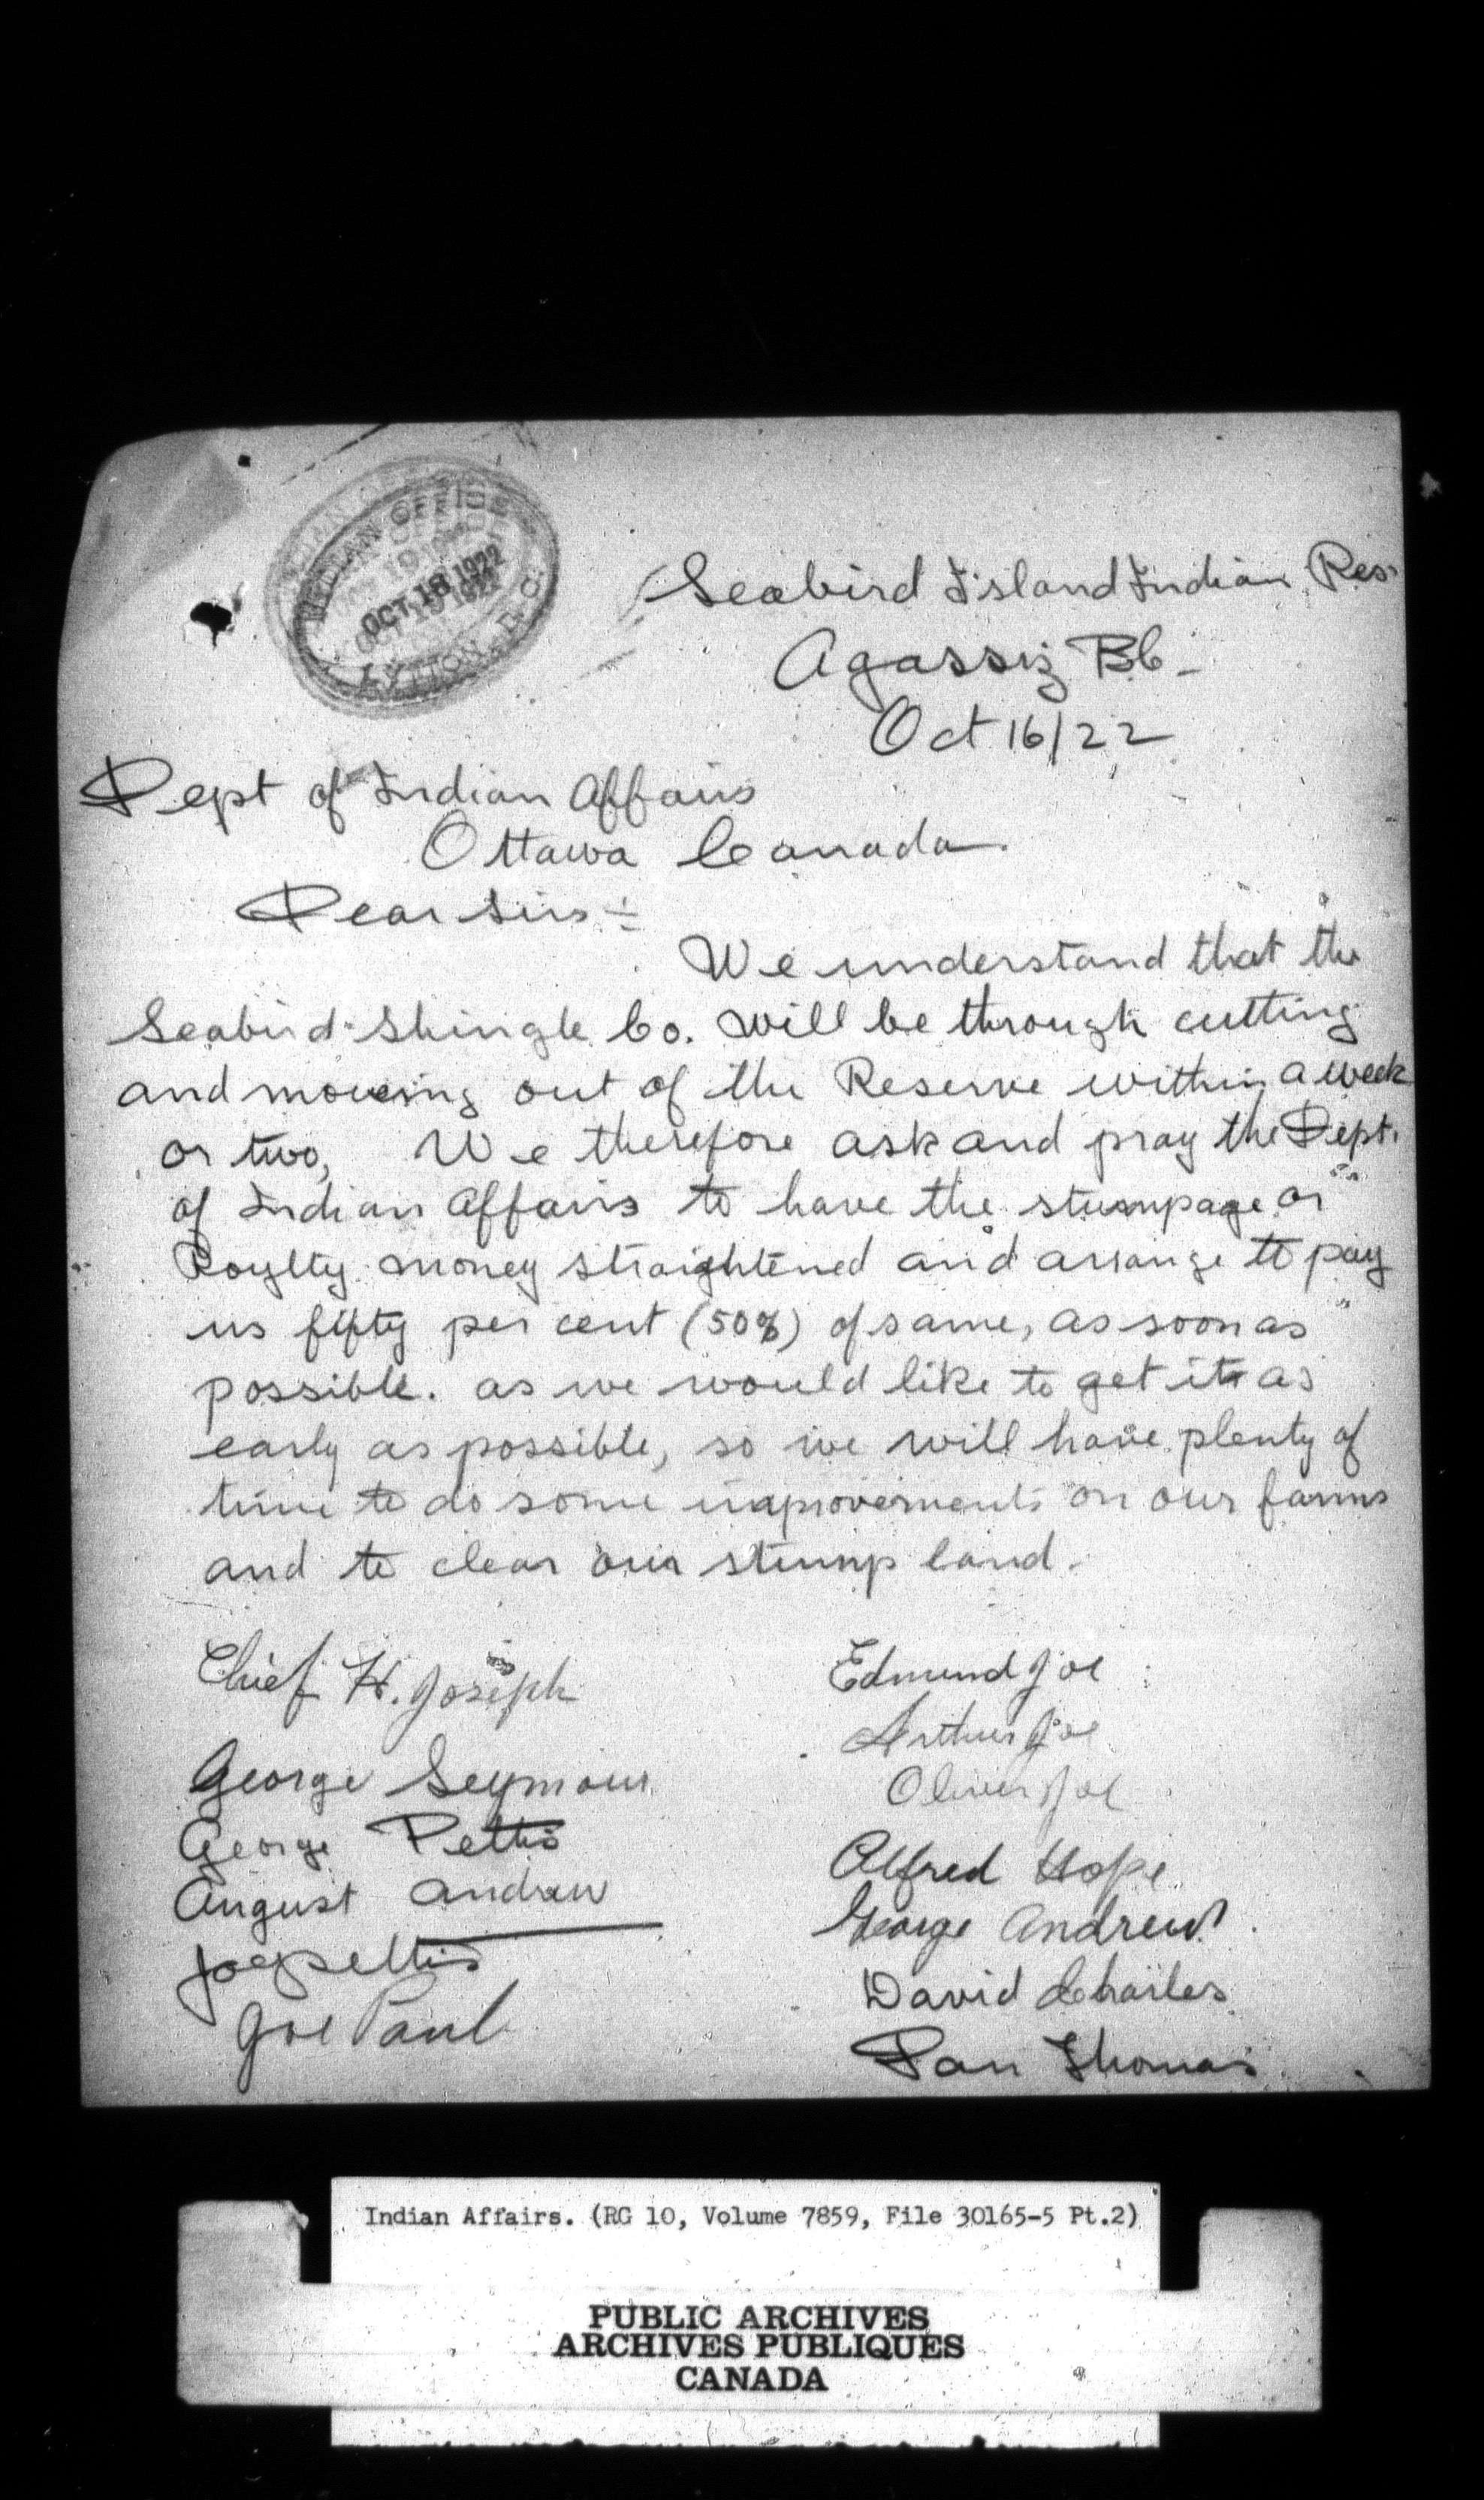 INDIAN OFFICE
OCT 18 1922
LYTTON, B.C.
Seabird Island Indian Res.
Agassiz B.C.
Oct 16/22
Dept of Indian Affairs
Ottawa Canada.
Dear Sirs:-
We understand that the
Seabird Shingle Co. will be through cutting
and moveing out of the Reserve within a week
or two, We therefore ask and pray the Dept.
of Indian Affairs to have the stumpage or
Roylty money straightened and arrange to pay
us fifty per cent (50%) of same, as soon as
possible. as we would like to get it as
early as possible, so we will have plenty of
time to do some improvements on our farms
and to clear our stump land.
Chief H. Joseph
George Seymour
George Pettis
August Andrew
Joe Pettis
Joe Paul
Edmund Joe
Arthur Joe
Oliver Joe
Alfred Hope
George Andrew
David Charles
Dan Thomas
Indian Affairs. (RG 10, Volume 7859, File 30165-5 Pt.2)
PUBLIC ARCHIVES
ARCHIVES PUBLIQUES
CANADA